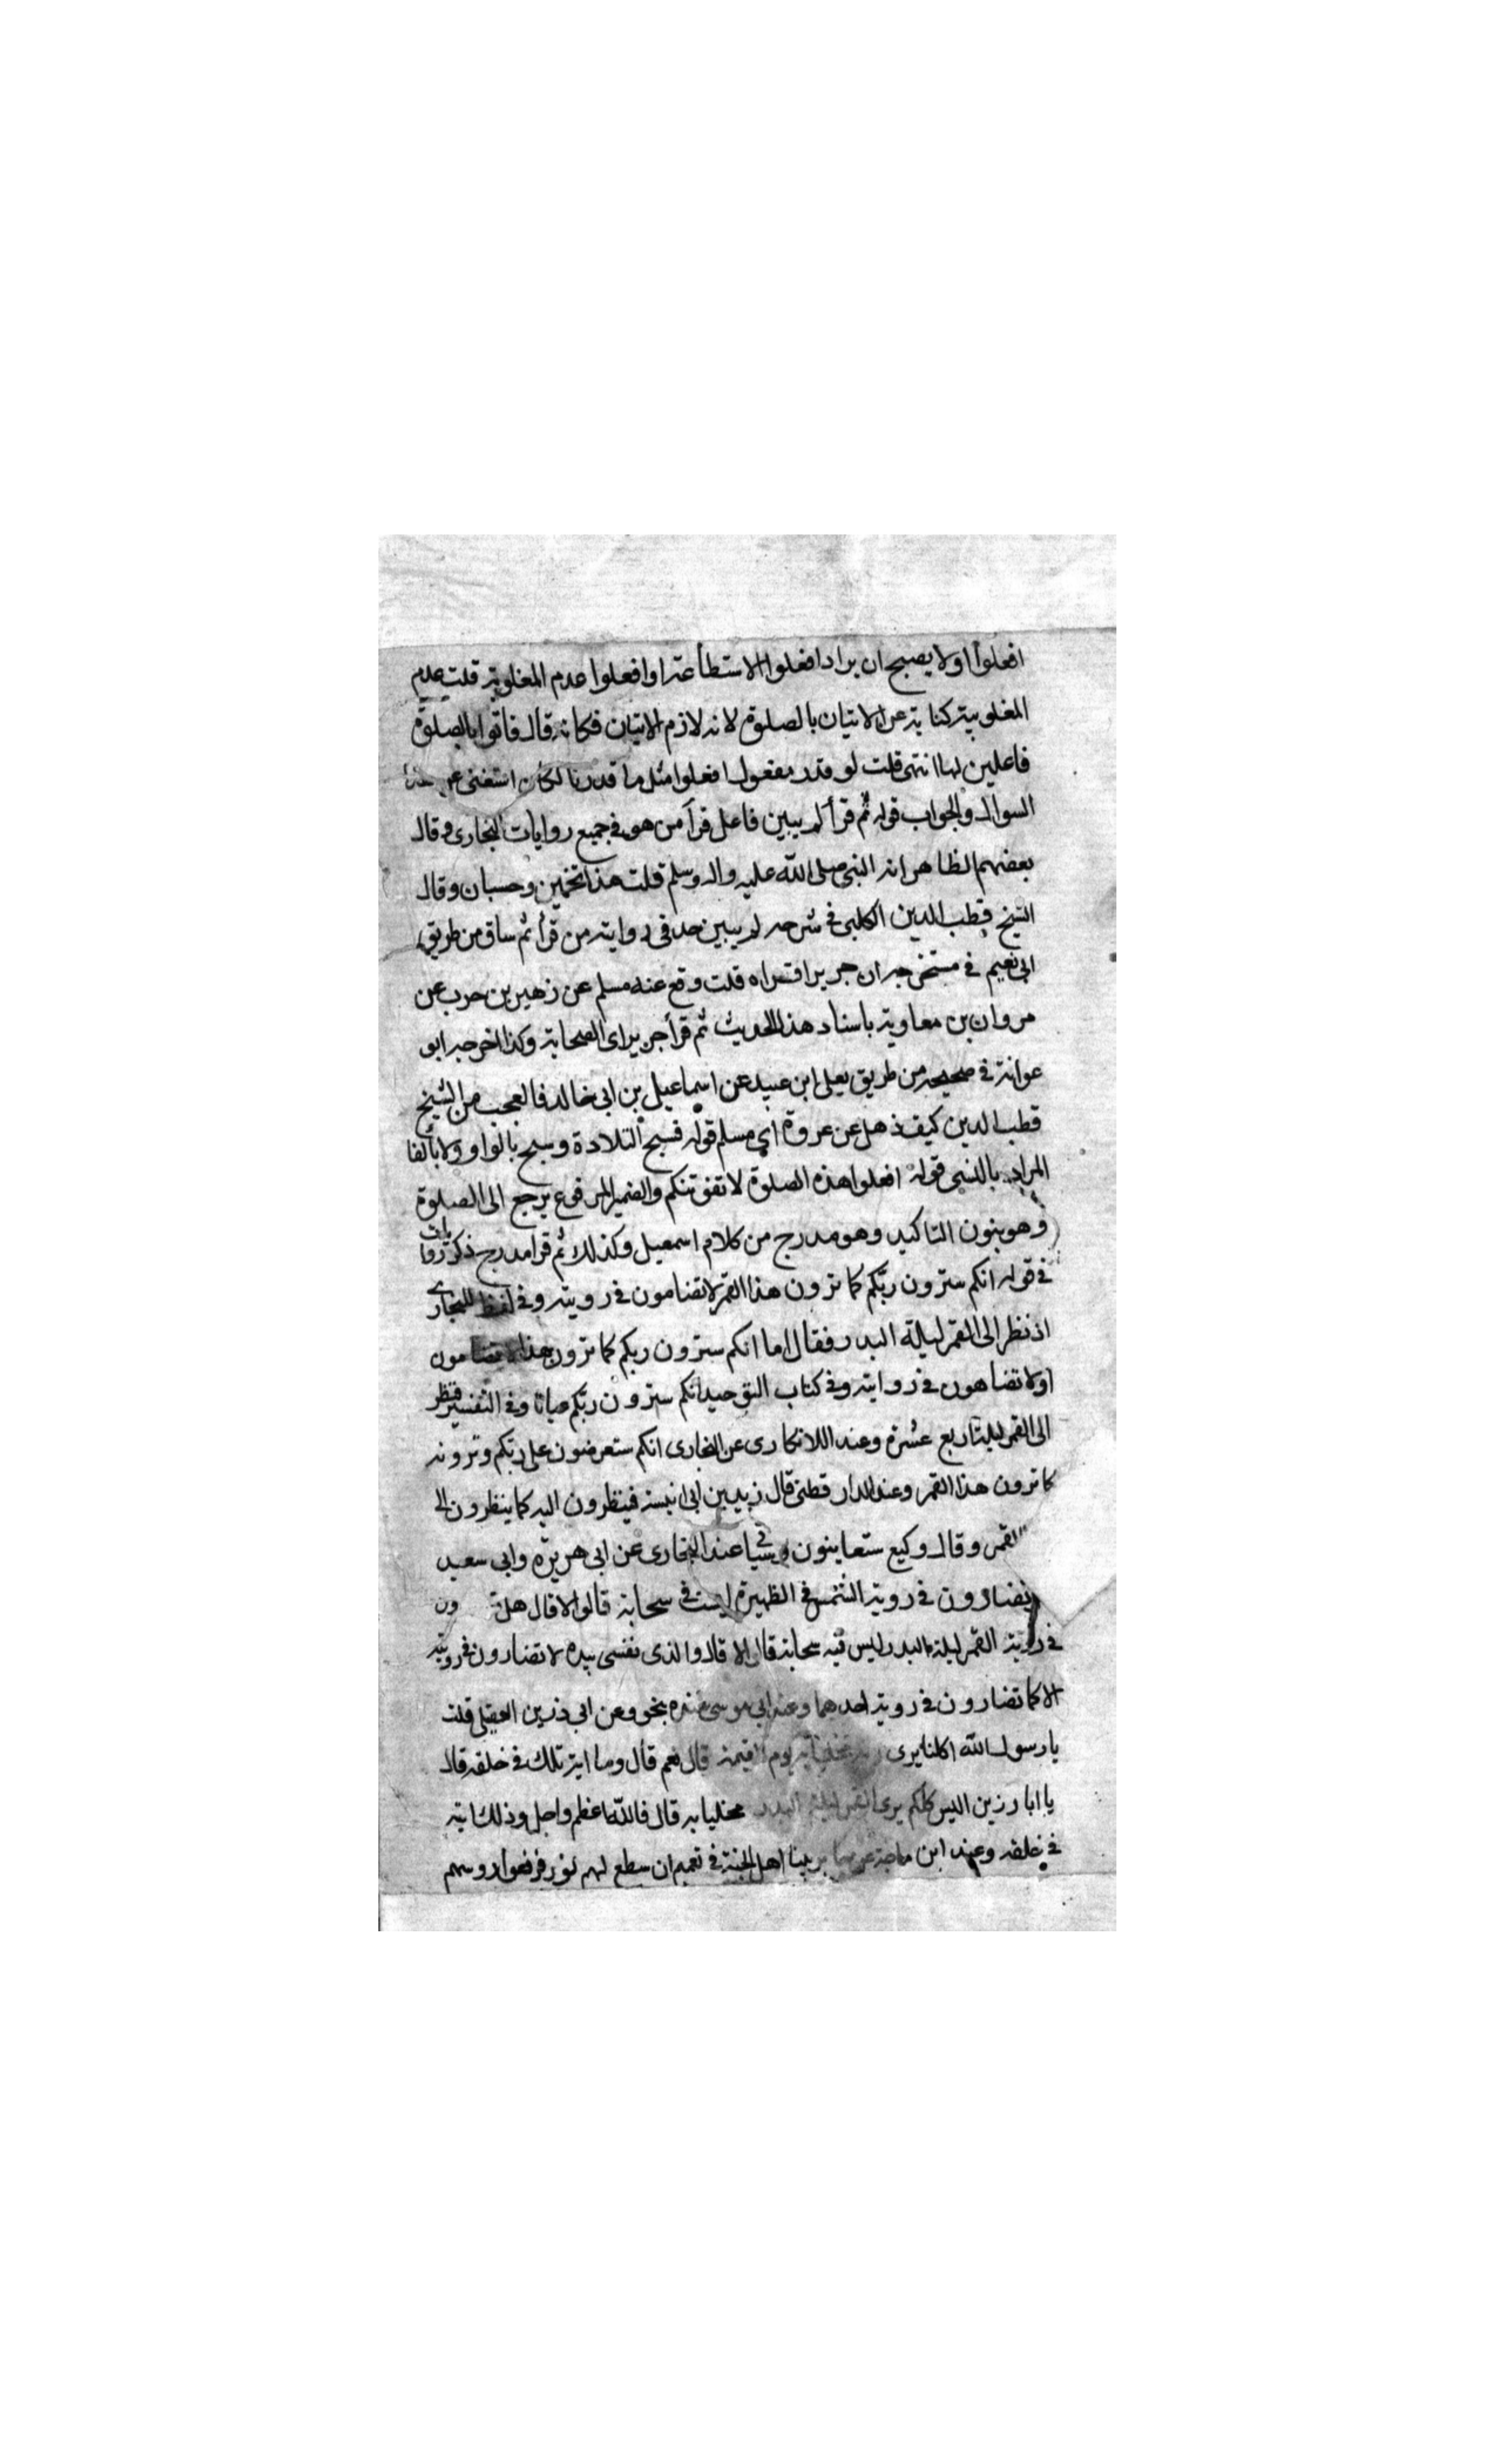 افعلوا اولا يصبح ان يراد افعلوا الاستطاعة او افعلوا عدم المغلوبية قلت عدم
المغلوبية كناية عن الاتيان بالصلوة لانه لازم الاتيان فكانه قال فاتوا بالصلوة
فاعلين لها انتهى قلت لو قدر مفعول افعلوا مثل ما قدرنا لكان استغنى عن هذا
السوال والجواب قوله ثم قرأ لم يبين فاعل قرأ من هو في جميع روايات البخارى وقال
بعضهم الظاهر انه النبي صلى الله عليه واله وسلم قلت هذا تخمين وحسبان وقال
الشيخ قطب الدين الكلبي في شرحه لم يبين احد في روايته من قرأ ثم ساق من طريق
ابي نعيم في مستخرجه ان جريرا قراه قلت وقع عند مسلم عن زهير بن حرب عن
مروان بن معاوية باسناد هذا الحديث ثم قرأ جرير اى الصحابة وكذا اخرجه ابو
عوانة في صحيحه من طريق يعلى ابن عبيد عن اسماعيل بن ابي خالد فالعجب من الشيخ
قطب الدين كيف ذهل عن عروة اي مسلم قوله فسبح التلاوة وسبح بالواو ولا بالفا
المراد بالنسي قوله افعلوا هذه الصلوة لا تفوتنكم والضمير المرفوع يرجع الى الصلوة
وهو بنون التاكيد وهو مدرج من كلام اسمعيل وكذلك ثم قرا مدرج ذكر روايات
في قوله انكم سترون ربكم كما ترون هذا القمر لا تضامون في رويته وفي لفظ للبخارى
اذ نظر الى القمر ليلة البدر فقال اما انكم سترون ربكم كما ترون هذا لا تضامون
او لا تضاهون في روايته وفي كتاب التوحيد انكم سترون ربكم عيانا وفي التفسير فنظر
الى القمر ليلة اربع عشرة وعند اللالكارى عن البخارى انكم ستعرضون على ربكم وترونه
كما ترون هذا القمر وعند الدار قطنى قال زيد بن ابى انيسة فينظرون اليه كما ينظرون الى
القمر وقال وكيع ستعاينون وفي شيا عند البخارى عن ابى هريرة وابى سعيد
تضارون في روية الشمس في الظهيرة ليست في سحابة قالوا لا قال هل ون
في روية القمر ليلة البدر ليس فيه سحابة قالوا لا قال والذى نفسى بيده لا تضارون في رويته
الا كما تضارون في روية احدهما وعند ابى موسى عنده بنحو وعن ابى رزين العقيلى قلت
يارسول الله اكلنا يرى ربه مخليا به يوم القيمة قال نعم قال وما اية تلك في خلقه قال
يا ابا رزين اليس كلكم يرى القمر ليلة البدر مخليا به قال فالله اعظم واجل وذلك اية
في خلقه وعند ابن ماجة عن جابر بينا اهل الجنة في نعيم ان سطع لهم نور فرفعوا روسهم